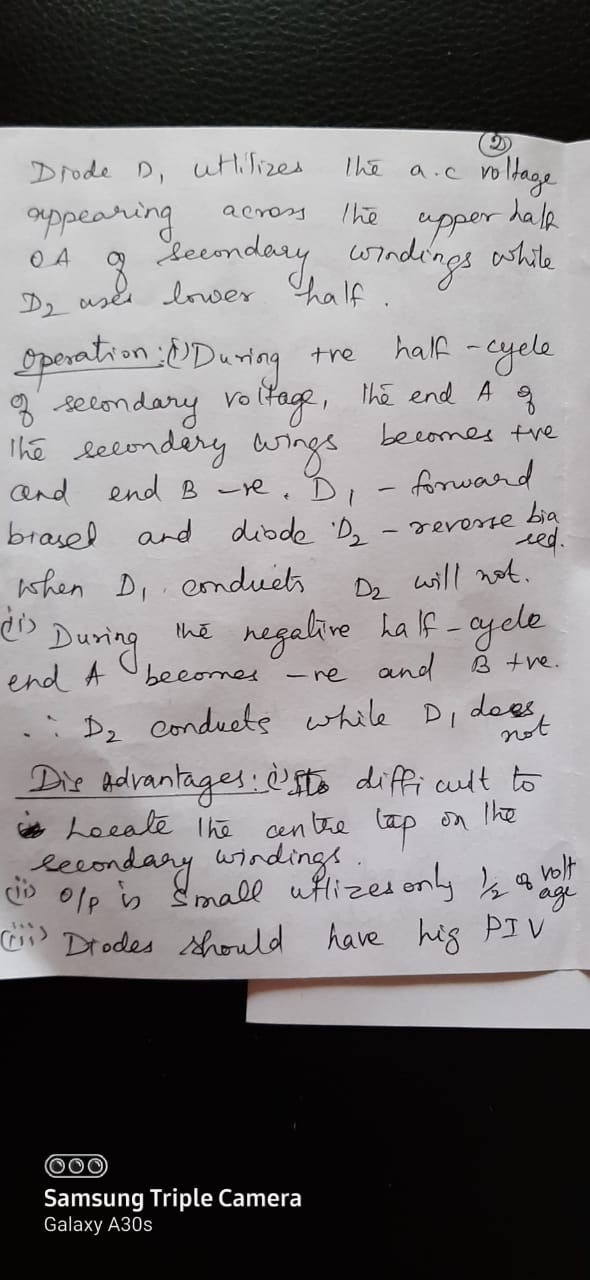 ②
Diode D1 utilizes the a.c voltage
appearing across the upper half
OA of secondary windings while
D2 uses lower half.
Operation: (i) During +ve half-cycle
of secondary voltage, the end A of
the secondary wings becomes +ve
and end B -ve. D1 - forward
biased and diode D2 - reverse bia
sed.
when D1 conducts D2 will not.
(ii) During the negative half-cycle
end A becomes -ve and B +ve.
∴ D2 conducts while D1 does
not
Dis Advantages: (i) Its difficult to
Locate the centre tap on the
secondary windings.
(ii) O/p is small utlizes only 1/2 of volt
age
(iii) Diodes should have hig PIV
Samsung Triple Camera
Galaxy A30s